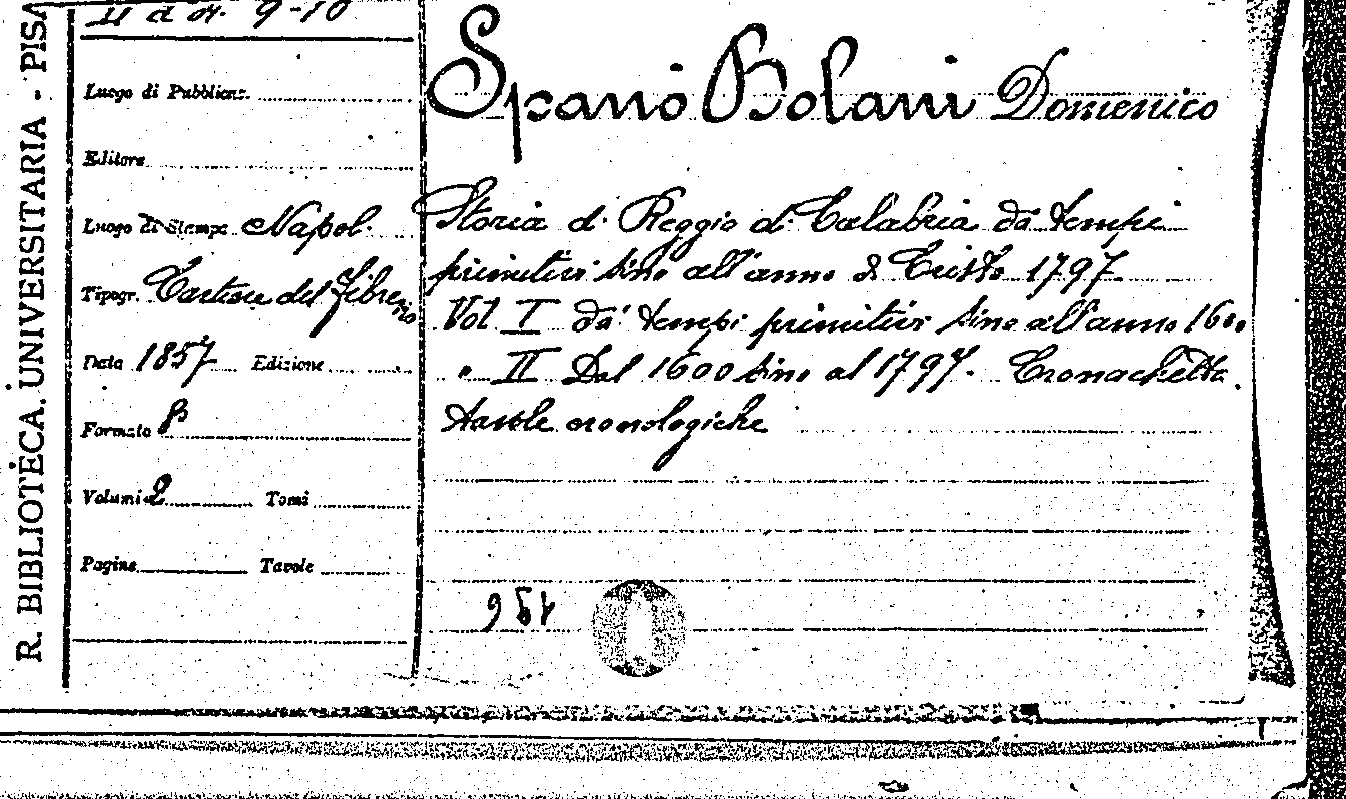 R. BIBLIOTECA UNIVERSITARIA - PISA
II d or. 9-10
Luogo di Pubblicaz.
Editore
Luogo di Stampa Napol.
Tipogr. Cartiere del Fibreno
Data 1857 Edizione
Formato 8
Volumi 2 Tomi
Pagine Tavole
Spanò Bolani Domenico
Storia di Reggio di Calabria da tempi
primitivi sino all'anno di Cristo 1797
Vol I da' tempi primitivi sino all'anno 1600
" II Dal 1600 sino al 1797. Cronachetta.
tavole cronologiche